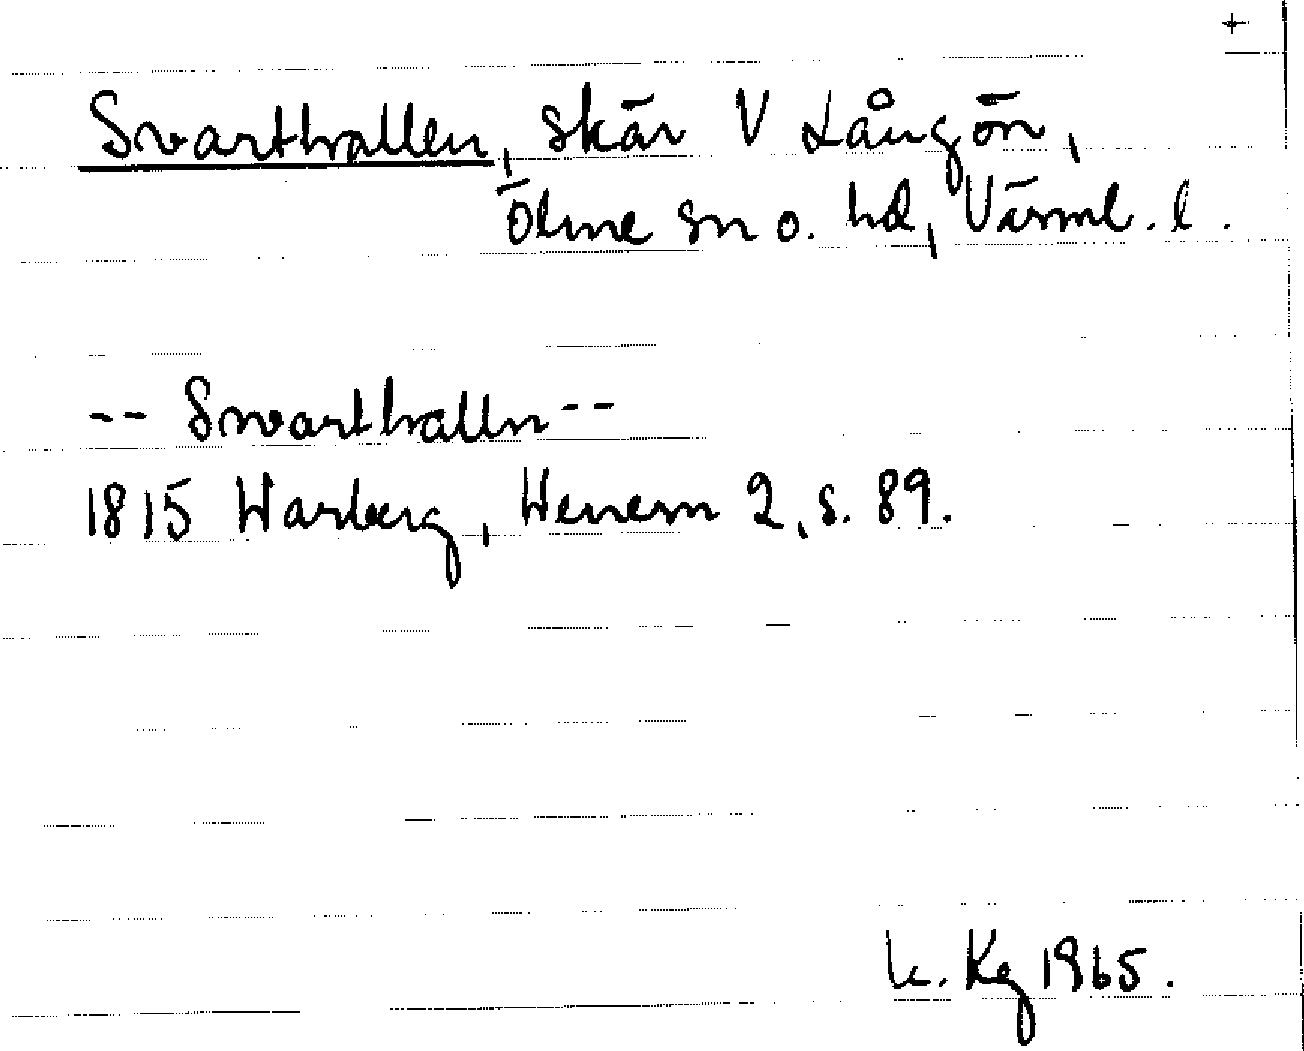 +
Svarthallen, skär V Långön,
Ölme sn o. hd, Värml. l.
-- Swarthalln --
1815 Warberg, Wenern 2, s. 89.
k. Kg 1965.